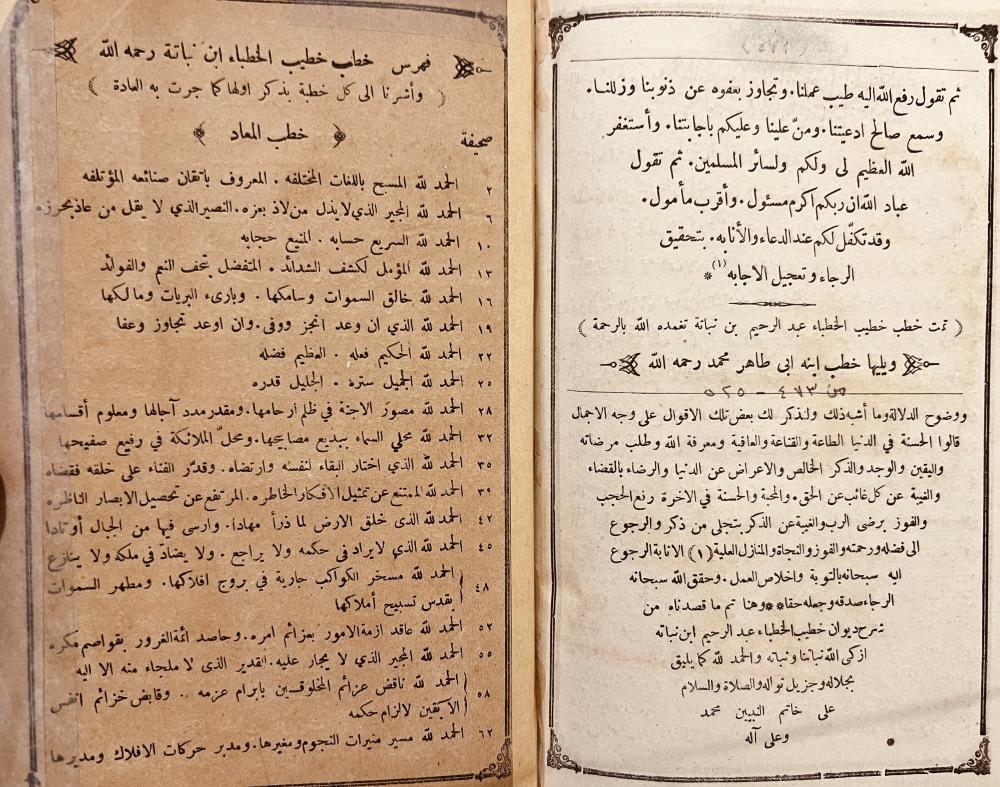 ثم تقول رفع الله اليه طيب عملنا. وتجاوز بعفوه عن ذنوبنا وزللنا.
وسمع صالح ادعيتنا. ومنّ علينا وعليكم باجابتنا. وأستغفر
الله العظيم لى ولكم ولسائر المسلمين. ثم تقول
عباد الله ان ربكم اكرم مسئول. وأقرب مأمول.
وقد تكفّل لكم عند الدعاء والأنابه. بتحقيق
الرجاء وتعجيل الاجابه (١) *
( تمت خطب خطيب الخطباء عبد الرحيم بن نباتة تغمده الله بالرحمة )
ويليها خطب ابنه ابى طاهر محمد رحمه الله
من ٤٧٣ - ٥٢٥
ووضوح الدلالة وما أشبه ذلك ولنذكر لك بعض تلك الاقوال على وجه الاجمال
قالوا الحسنة في الدنيا الطاعة والقناعة والعافية ومعرفة الله وطلب مرضاته
واليقين والوجد والذكر الخالص والاعراض عن الدنيا والرضاء بالقضاء
والغيبة عن كل غائب عن الحق. والمحبة والحسنة في الاخرة رفع الحجب
والفوز برضى الرب والغيبة عن الذكر بتجلى من ذكر والرجوع
الى فضله ورحمته والفوز والنجاة والمنازل العلية (١) الانابة الرجوع
اليه سبحانه بالتوبة واخلاص العمل. وحقق الله سبحانه
الرجاء صدقه وجعله حقا ** وهنا تم ما قصدناه من
شرح ديوان خطيب الخطباء عبد الرحيم ابن نباته
ازكى الله نباتنا ونباته والحمد لله كما يليق
بجلاله وجزيل نواله والصلاة والسلام
على خاتم النبيين محمد
وعلى آله
فهرس خطب خطيب الخطباء ابن نباتة رحمه الله
( وأشرنا الى كل خطبة بذكر اولها كما جرت به العادة )
صحيفة ( خطب المعاد )
٢ الحمد لله المسبح باللغات المختلفه. المعروف باتقان صنائعه المؤتلفه
٦ الحمد لله المجير الذي لا يذل من لاذ بعزه. النصير الذي لا يقل من عاذ بحرزه
١٠ الحمد لله السريع حسابه. المنيع حجابه
١٣ الحمد لله المؤمل لكشف الشدائد. المتفضل بتحف النعم والفوائد
١٦ الحمد لله خالق السموات وسامكها. وبارىء البريات ومالكها
١٩ الحمد لله الذي ان وعد انجز ووفى. وان اوعد تجاوز وعفا
٢٢ الحمد لله الحكيم فعله. العظيم فضله
٢٥ الحمد لله الجميل ستره. الجليل قدره
٢٨ الحمد لله مصور الاجنة في ظلم ارحامها. ومقدر مدد آجالها ومعلوم أقسامها
٣٢ الحمد لله محلي السماء ببديع مصابيحها. ومحلّ الملائكة في رفيع صفيحها
٣٥ الحمد لله الذي اختار البقاء لنفسه وارتضاه. وقدّر الفناء على خلقه فقضاه
٣٩ الحمد لله الممتنع عن تمثيل الافكار الخاطره. المرتفع عن تحصيل الابصار الناظره
٤٢ الحمد لله الذى خلق الارض لما ذرأ مهادا. وارسى فيها من الجبال أوتادا
٤٥ الحمد لله الذي لا يراد فى حكمه ولا يراجع. ولا يضادّ في ملكه ولا ينازع
٤٨ الحمد لله مسخر الكواكب جارية في بروج افلاكها. ومطهر السموات
بقدس تسبيح أملاكها
٥٢ الحمد لله عاقد ازمة الامور بعزائم امره. وحاصد ائمة الغرور بقواصم مكره
٥٥ الحمد لله المجير الذي لا يجار عليه. القدير الذى لا ملجاء منه الا اليه
٥٨ الحمد لله ناقض عزائم المخلوقين بابرام عزمه .. وقابض خزائم انفس
الآبقين لالزام حكمه
٦٢ الحمد لله مسير منيرات النجوم ومغيرها. ومدبر حركات الافلاك ومديرها